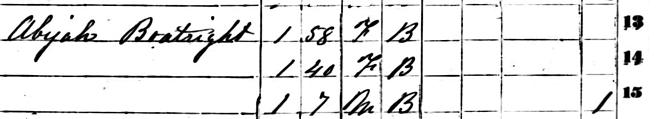 Abijah Boatright 1 58 F B 13
1 40 F B 14
1 7 M B 1 15